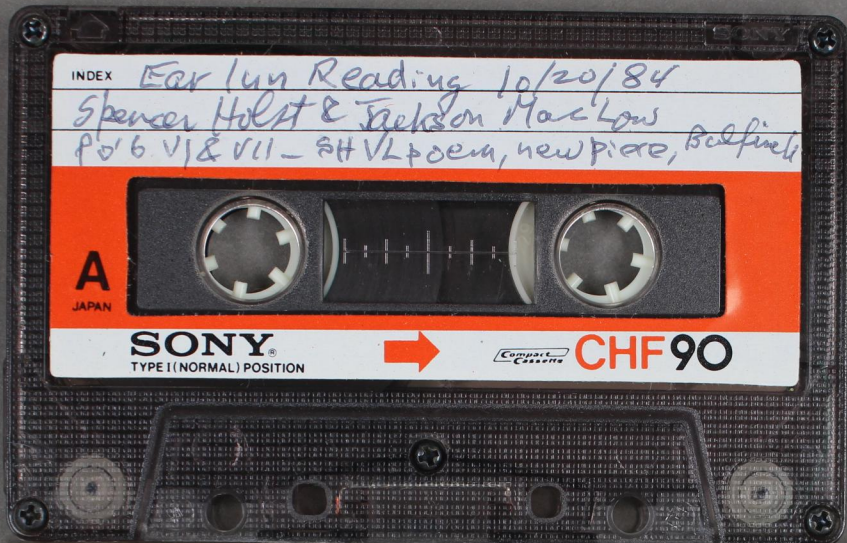 INDEX Ear Inn Reading 10/20/84
Spencer Holst & Jackson Mac Low
VI & VII - SH VL poem, new piece, Bulfinch
A
JAPAN
SONY®
TYPE I (NORMAL) POSITION
Compact Cassette
CHF 90